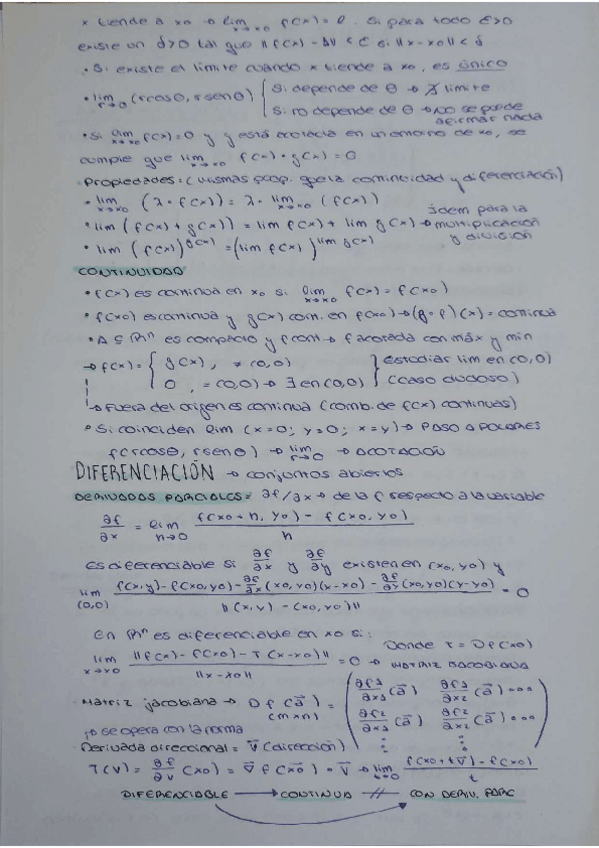 x tiende a x0 → lim x→x0 f(x) = l. Si para todo ε>0
existe un δ>0 tal que ||f(x) - Δ|| < ε si ||x - x0|| < δ
• Si existe el límite cuando x tiende a x0, es único
• lim r→0 (rcosθ, rsenθ) { Si depende de θ → ∄ límite
Si no depende de θ → No se puede afirmar nada
• Si lim x→x0 f(x) = 0 y g está acotada en un entorno de x0, se
cumple que lim x→x0 f(x) · g(x) = 0
Propiedades: (mismas prop. para continuidad y diferenciación)
• lim x→x0 (λ · f(x)) = λ · lim x→x0 (f(x))
• lim (f(x) + g(x)) = lim f(x) + lim g(x) → ídem para la multiplicación y división
• lim (f(x))^g(x) = (lim f(x))^lim g(x)
CONTINUIDAD
• f(x) es continua en x0 si lim x→x0 f(x) = f(x0)
• f(x0) es continua y g(x) cont. en f(x0) → (g∘f)(x) = continua
• A ⊆ ℝⁿ es compacto y f cont → f acotada con máx y min
→ f(x) = { g(x), ≠ (0,0)
0, = (0,0) → ∃ en (0,0) } estudiar lim en (0,0) (caso dudoso)
↳ Fuera del origen es continua (comb. de f(x) continuas)
• Si coinciden lim (x=0; y=0; x=y) → PASO A POLARES
f(rcosθ, rsenθ) → lim r→0 → ACOTACIÓN
DIFERENCIACIÓN → conjuntos abiertos
DERIVADAS PARCIALES = ∂f/∂x → de la f respecto a la variable
∂f/∂x = lim h→0 (f(x0+h, y0) - f(x0, y0)) / h
Es diferenciable si ∂f/∂x y ∂f/∂y existen en (x0, y0) y
lim (0,0) (f(x,y) - f(x0,y0) - ∂f/∂x (x0,y0)(x-x0) - ∂f/∂y (x0,y0)(y-y0)) / ||(x,y) - (x0,y0)|| = 0
En ℝⁿ es diferenciable en x0 si:
Donde T = Df(x0)
lim x→x0 ||f(x) - f(x0) - T(x-x0)|| / ||x-x0|| = 0 → MATRIZ JACOBIANA
• Matriz jacobiana → Df(a⃗) (m×n) = ( ∂f1/∂x1 (a⃗) ∂f1/∂x2 (a⃗) ...
∂f2/∂x1 (a⃗) ∂f2/∂x2 (a⃗) ...
⋮ ⋮ )
→ se opera con la norma
• Derivada direccional = v⃗ (dirección)
T(v) = ∂f/∂v (x0) = ∇⃗f(x⃗0) · v⃗ → lim t→0 (f(x0+tv⃗) - f(x0)) / t
DIFERENCIABLE → CONTINUA -//- CON DERIV. PARC